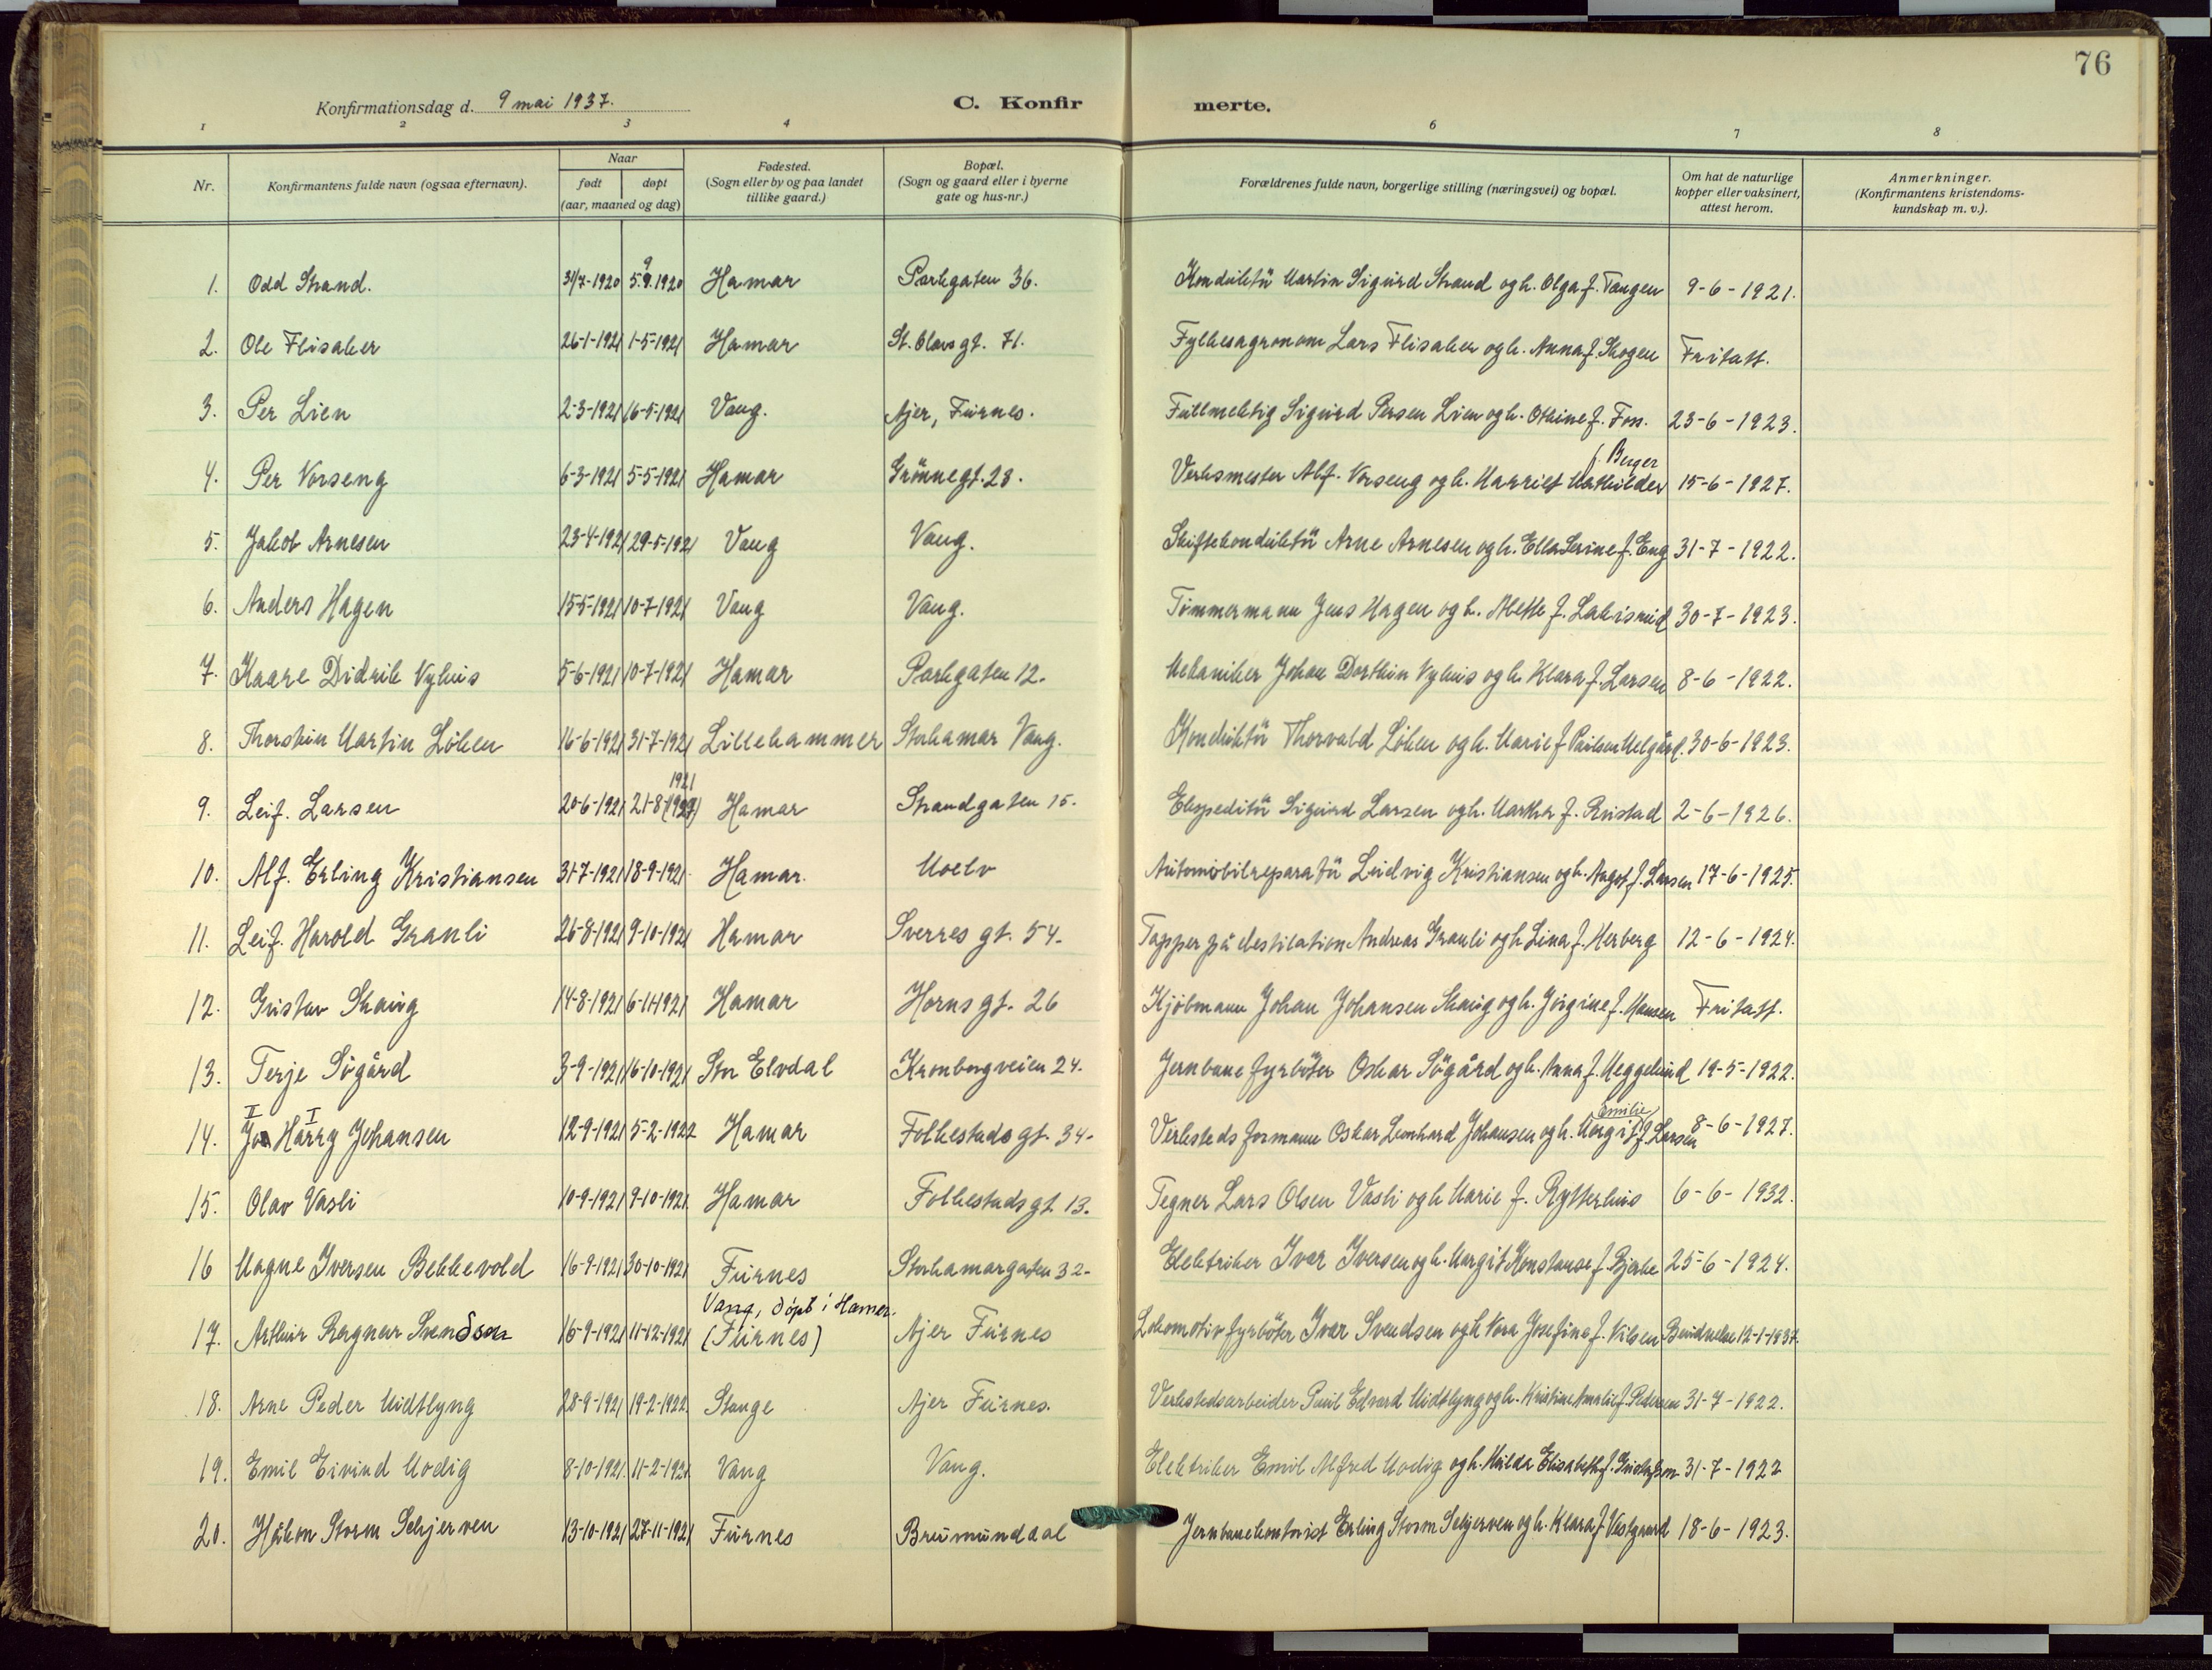 76
Konfirmationsdag d. 9 mai 1937.
C. Konfir merte.
1 2 3 4 6 7 8
Nr.
Konfirmantens fulde navn (ogsaa efternavn).
Naar
født døpt
(aar, maaned og dag)
Fødested.
(Sogn eller by og paa landet
tillike gaard.)
Bopæl.
(Sogn og gaard eller i byerne
gate og hus-nr.)
Forældrenes fulde navn, borgerlige stilling (næringsvei) og bopæl.
Om hat de naturlige
kopper eller vaksinert,
attest herom.
Anmerkninger.
(Konfirmantens kristendoms-
kundskap m. v.).
9
1. Odd Strand. 31/7-1920 5.9.1920 Hamar Parkgaten 36. Konduktür Martin Sigurd Strand og h. Olga f. Tangen 9-6-1921.
2. Ole Flisaker 26-1-1921 1-5-1921 Hamar St. Olavs gt. 71. Fylkesagronom Lars Flisaker og h. Anna f. Skogen Fritatt.
3. Per Lien 2-3-1921 16-5-1921 Vang. Ajer, Furnes. Fullmektig Sigurd Persen Lien og h. Othine f. Foss. 23-6-1923.
f. Berger
4. Per Vorseng 6-3-1921 5-5-1921 Hamar Grönnegt. 28. Verksmester Alf. Vorseng og h. Harriet 15-6-1927.
5. Jakob Arnesen 23-4-1921 29-5-1921 Vang Vang. Skiftekonduktür Arne Arnesen og h. Ella Serine f. Eng 31-7-1922.
6. Anders Hagen 15-5-1921 10-7-1921 Vang Vang. Tømmermann Jens Hagen og h. Alette f. 30-7-1923.
7. Kaare Didrik Nyhus 5-6-1921 10-7-1921 Hamar Parkgaten 12. Mekaniker Johan Dorthin Nyhus og h. Klara f. Larsen 8-6-1922.
8. Thorstein Martin Löken 16-6-1921 31-7-1921 Lillehammer Storhamar Vang. Konduktür Thorvald Löken og h. Marie f. Paulsen Melgård. 30-6-1923.
1921
9. Leif. Larsen 20-6-1921 21-8-(1927) Hamar Strandgaten 15. Ekspeditür Sigurd Larsen og h. Martha f. Rustad 2-6-1926.
10. Alf. Erling Kristiansen 31-7-1921 18-9-1921. Hamar. Moelv Automobilreparatür Ludvig Kristiansen og h. Aagot f. Larsen 17-6-1925.
11. Leif. Harold Granli 26-8-1921 9-10-1921 Hamar Sverres gt. 54. Tapper på destilation Andreas Granli og h. Lina f. Herberg 12-6-1924.
12. Gustav Skaug 14-8-1921 6-11-1921 Hamar Horns gt. 26 Kjöbmann Johan Johansen Skaug og h. Jörgine f. Hansen Fritatt.
13. Terje Sögård 3-9-1921 16-10-1921 Stor Elvdal Kronborgveien 24. Jernbanefyrböter Oskar Sögård og h. Anna f. Meggelund 19-5-1922.
II I Emilie
14. Jon Harry Johansen 12-9-1921 5-2-1922 Hamar Folkestads gt. 34. Verksteds formann Oskar Leonhard Johansen og h. Margit f. Larsen 8-6-1927.
15. Olav Vasli 10-9-1921 9-10-1921. Hamar Folkestads gt. 13. Tegner Lars Olsen Vasli og h. Marie f. Rytterhus 6-6-1932.
16 Magne Iversen Bekkevold 16-9-1921 30-10-1921 Furnes Storhamargaten 32. Elektriker Ivar Iversen og h. Margit Konstanse f. Bjerke 25-6-1924.
Vang, döpt i Hamar.
17. Arthur Ragnar Svendsen 16-9-1921 11-12-1921 (Furnes) Ajer Furnes Lokomotivfyrböter Ivar Svendsen og h. Nora Josefine f. Nilsen Bevidnelse 12-1-1937.
18. Arne Peder Midtlyng 28-9-1921 19-2-1922. Stange Ajer Furnes. Verkstedsarbeider Paul Edvard Midtlyng og h. Kristine Amalie f. Pedersen 31-7-1922.
19. Emil Eivind Modig 8-10-1921. 11-2-1921. Vang Vang. Elektriker Emil Alfred Modig og h. Hulda Elisabeth f. Gustafson 31-7-1922
20. Håkon Storm Schjerven 13-10-1921 27-11-1921 Furnes Brumunddal Jernbanekontorist Erling Storm Schjerven og h. Klara f. Vestgaard 18-6-1923.